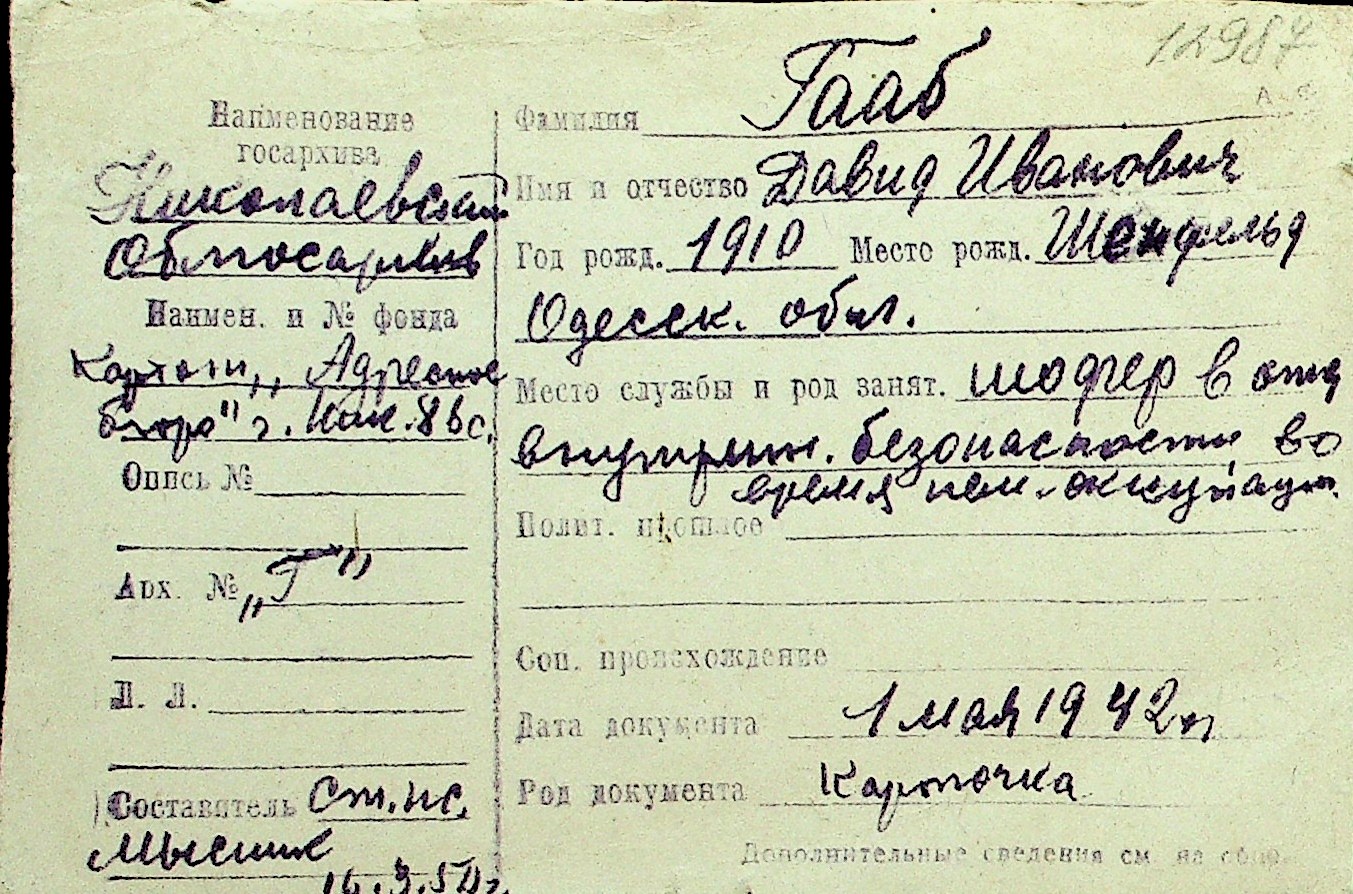 12987
Наименование
госархива
Николаевский
Облгосархив
Наимен. и № фонда
Картот. „Адресное
бюро" г. Ник.
Опись №
Арх. № „Г"
Л. Л.
Составитель Ст. нс.
Мысник
Фамилия Гааб
Имя и отчество Давид Иванович
Год рожд. 1910 Место рожд. Шенфельд
Одесск. обл.
Место службы и род занят. шофер в отд
внутрен. безопасности во
время нем. оккупации
Полит. прошлое
Соц. происхождение
Дата документа 1 мая 1942 г.
Род документа Карточка
Дополнительные сведения см. на обор.